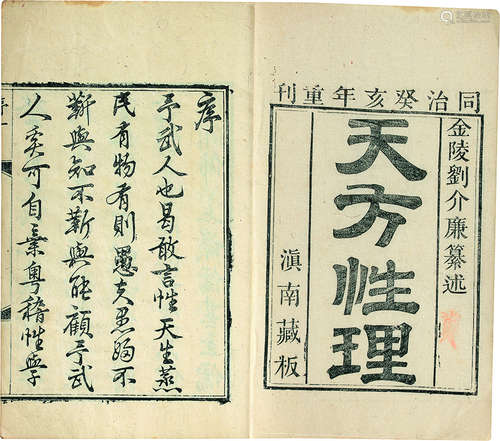 同治癸亥年重刊
金陵劉介廉纂述
天方性理
滇南藏板
序
予武人也曷敢言性天生蒸
民有物有則愚夫愚婦不
蘄與知不蘄與能顧予武
人奚可自棄粵稽性學